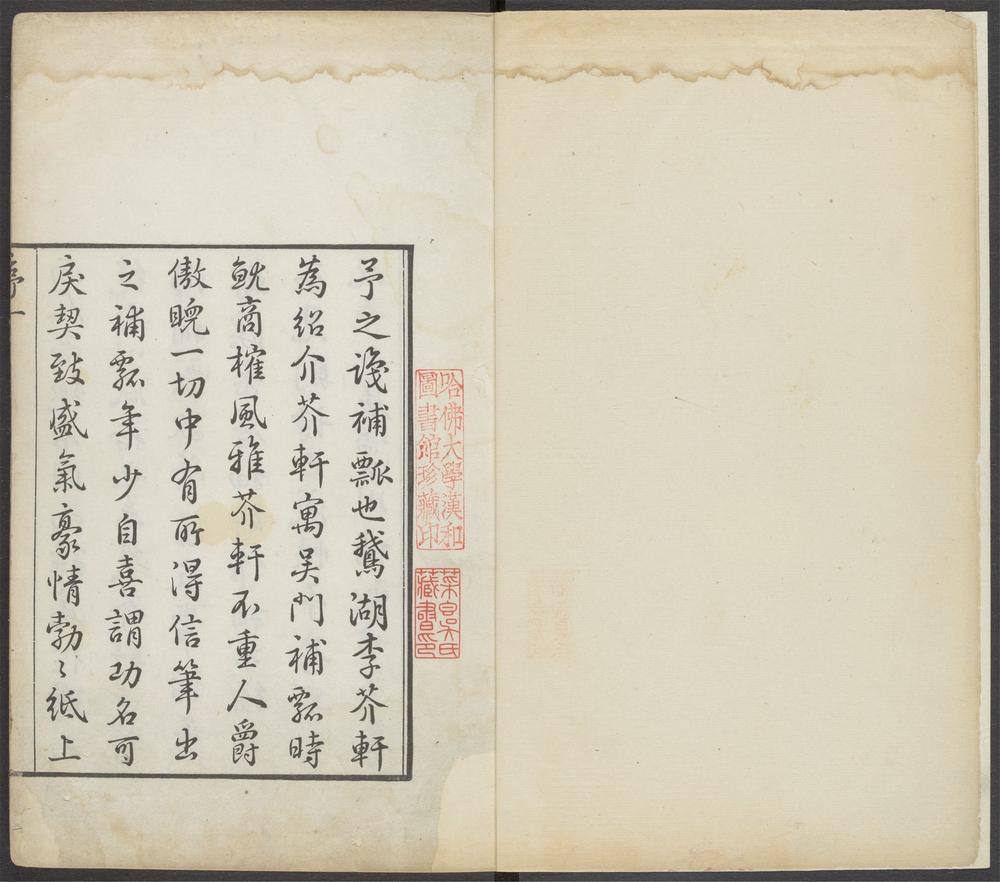 哈佛大學漢和
圖書館珍藏印
藏書印
予之識補瓢也鵝湖李芥軒
為紹介芥軒寓吳門補瓢時
就商榷風雅芥軒不重人爵
傲睨一切中有所得信筆出
之補瓢年少自喜謂功名可
戾契致盛氣豪情勃〻紙上
序一